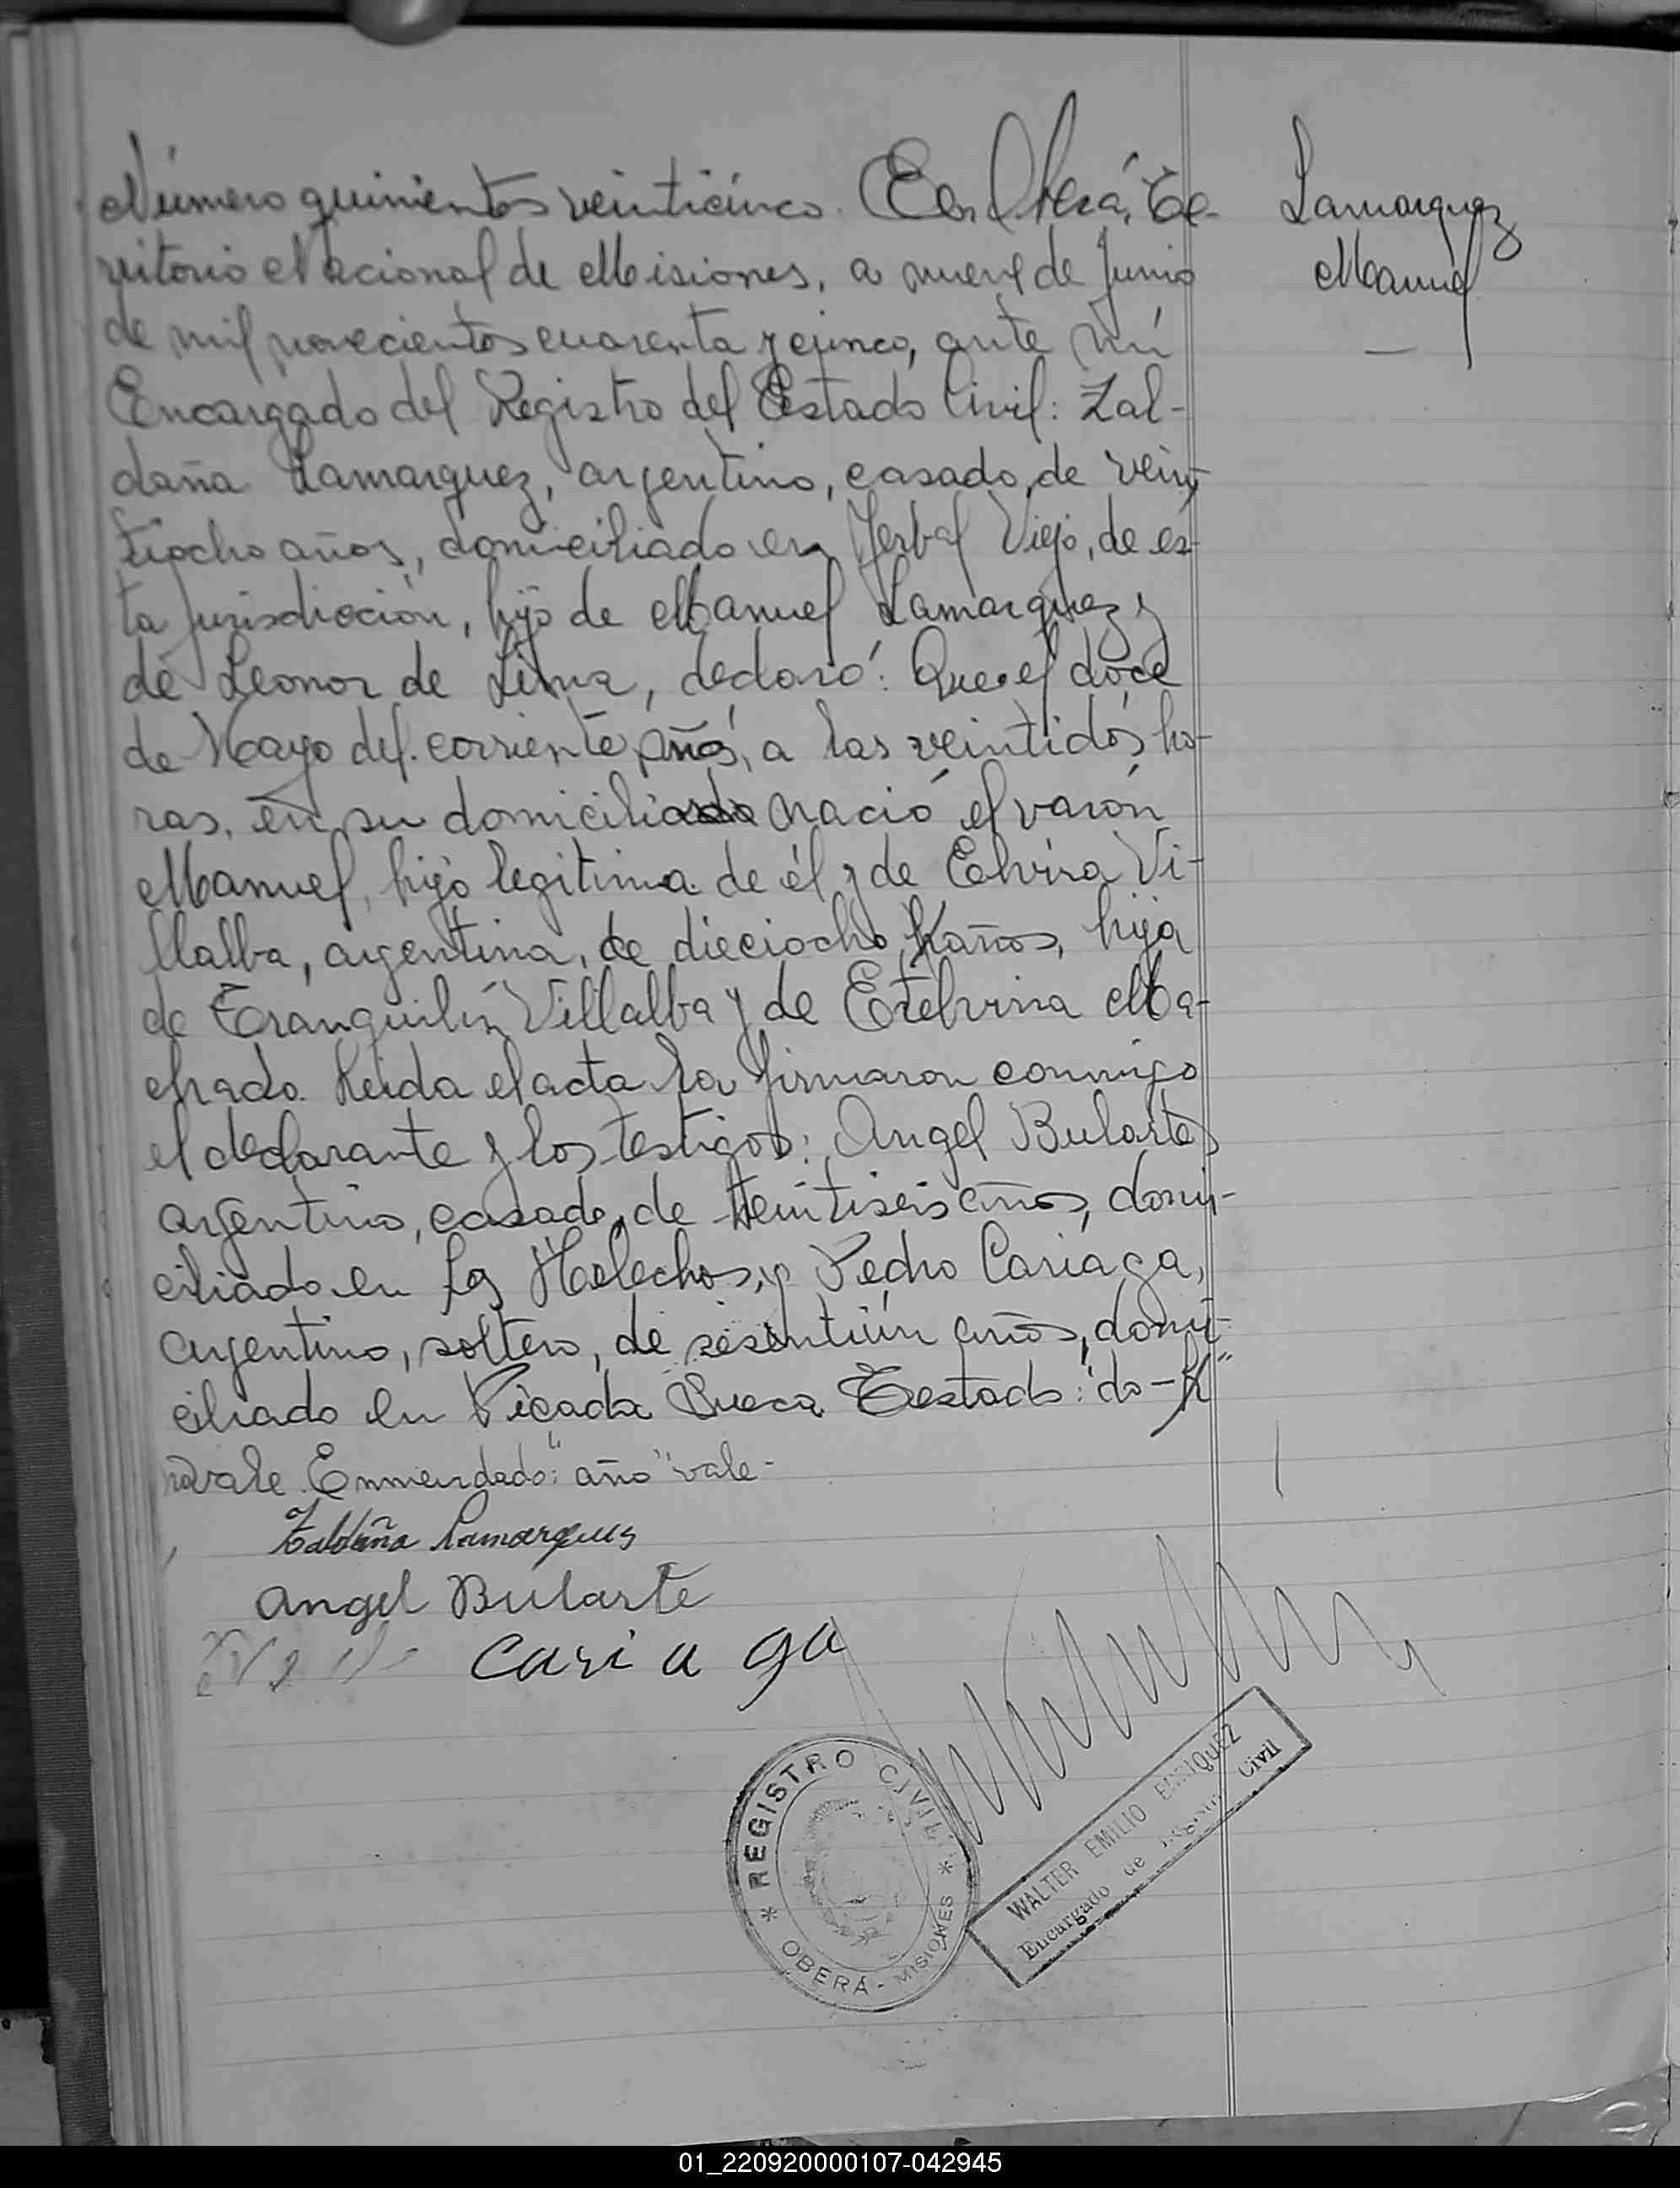 Número quinientos veinticinco. En Oberá, Te-
rritorio Nacional de Misiones, a nueve de Junio
de mil novecientos cuarenta y cinco, ante mí
Encargado del Registro del Estado Civil: Zal-
daña Lamarquez, argentino, casado, de vein-
tiocho años, domiciliado en Yerbal Viejo, de es-
ta jurisdicción, hijo de Manuel Lamarquez y
de Leonor de Lima, declaró: Que el doce
de Mayo del corriente año, a las veintidós ho-
ras, en su domicilio nació el varón
Manuel, hijo legitima de él y de Elvira Vi-
llalba, argentina, de dieciocho años, hija
de Tranquilin Villalba y de Etelvina Ma-
chado. Leida el acta la firmaron conmigo
el declarante y los testigos: Angel Bularte,
argentino, casado, de veintiseis años, domi-
ciliado en Los Helechos, y Pedro Cariaga,
argentino, soltero, de sesentiún años, domi-
ciliado en Picada Sueca Testado: "do-h"
no vale. Enmendado: "año" vale-
Zaldaña Lamarques
Angel Bularte
cari a ga
Lamarquez
Manuel
—
* REGISTRO CIVIL *
OBERÁ - MISIONES
WALTER EMILIO ENRIQUEZ
Encargado de Registro Civil
01_220920000107-042945